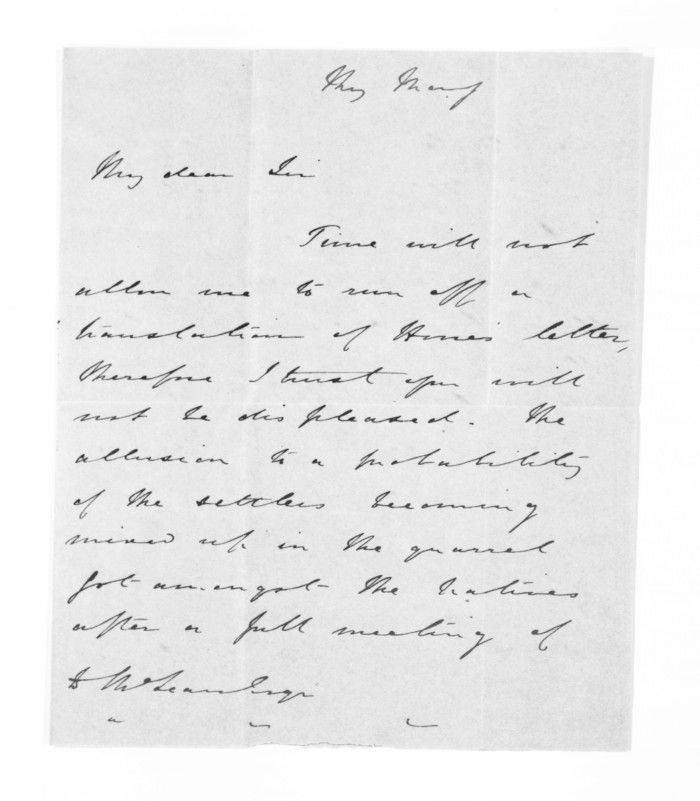 My dear Sir
Time will not
allow me to run off a
translation of Hone's letter,
therefore I trust you will
not be displeased. The
allusion to a probability
of the settlers becoming
mixed up in the quarrel
got amongst the Natives
after a full meeting of
D McLean Esqr